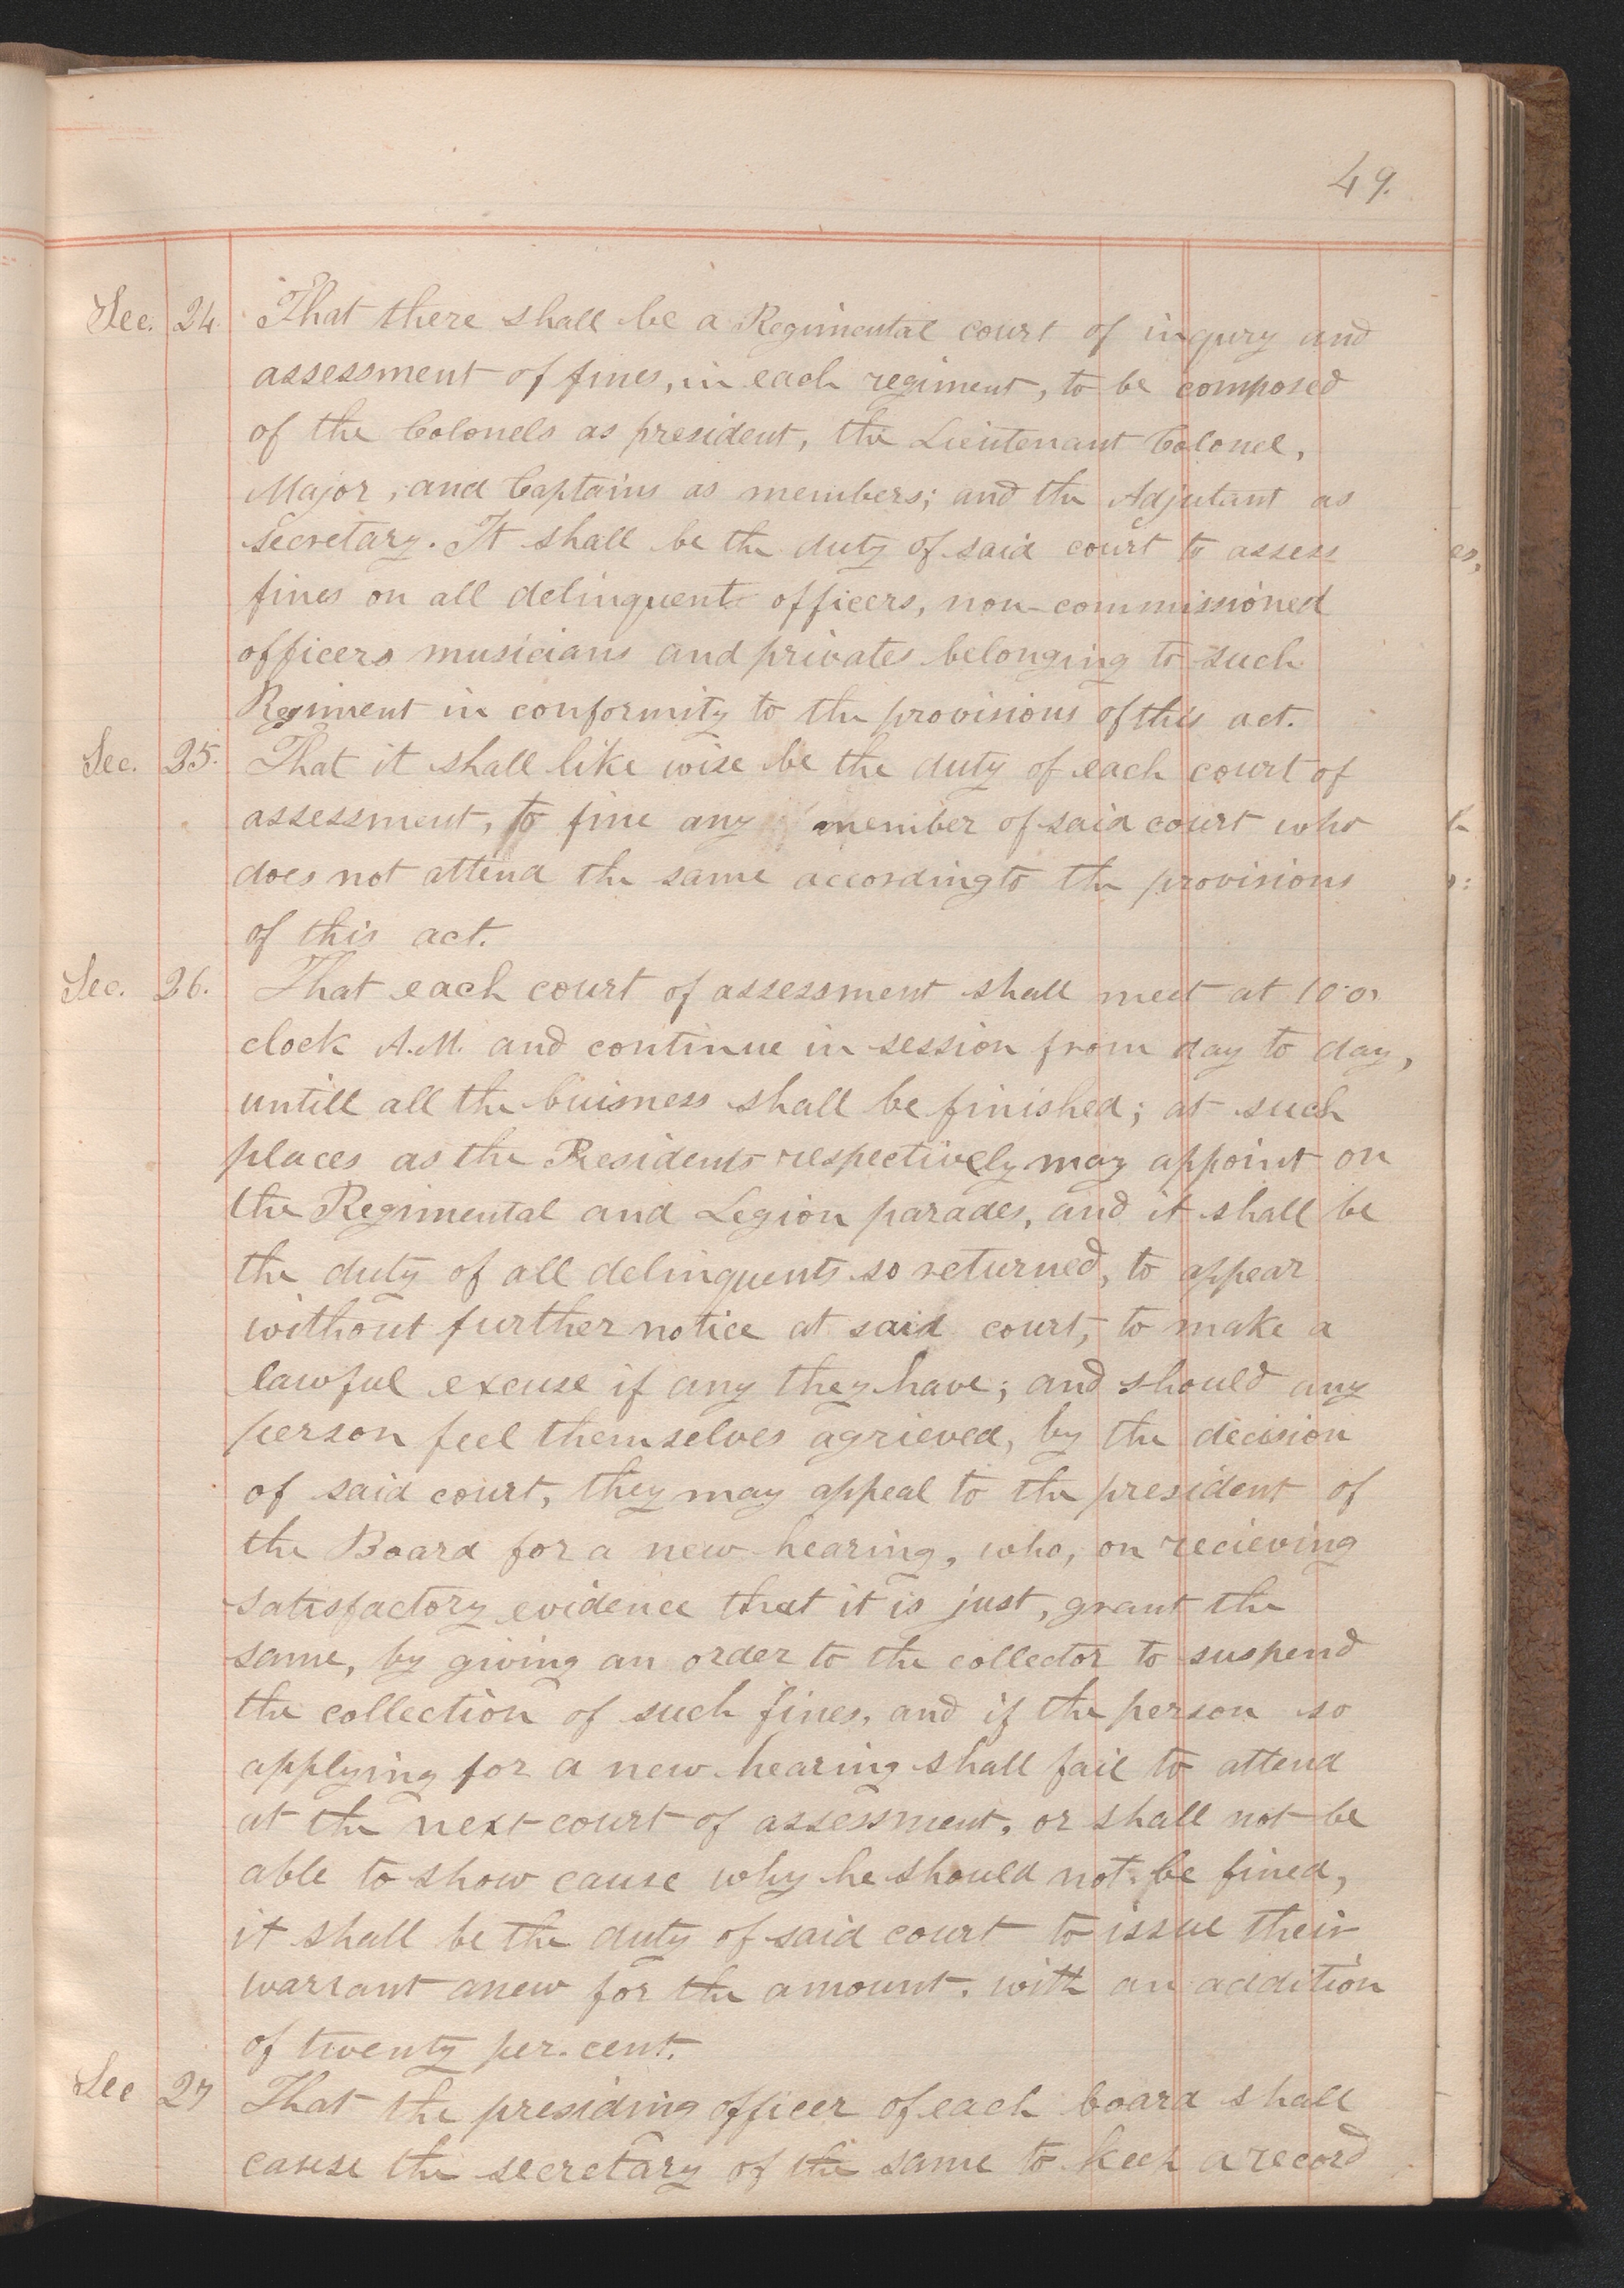 49.
Sec. 24. That there shall be a Regimental court of inqury and
assessment of fines, in each regiment, to be composed
of the Colonels as president, the Lieutenant Colonel,
Major, and Captains as members; and the Adjutant as
secretary. It shall be the duty of said court to assess
fines on all delinquent officers, non-commissioned
officers musicians and privates belonging to such
Regiment in conformity to the provisions of this act.
Sec. 25. That it shall like wise be the duty of each court of
assessment, to fine any member of said court who
does not attend the same according to the provisions
of this act.
Sec. 26. That each court of assessment shall meet at 10 o,
clock A.M. and continue in session from day to day,
untill all the buisness shall be finished; at such
places as the Presidents respectively may appoint on
the Regimental and Legion parades, and it shall be
the duty of all delinquents so returned, to appear
without further notice at said court, to make a
lawful excuse if any they have; and should any
person feel themselves agrieved, by the decision
of said court, they may appeal to the president of
the Board for a new hearing, who, on recieving
satisfactory evidence that it is just, grant the
same, by giving an order to the collector to suspend
the collection of such fines, and if the person so
applying for a new hearing shall fail to attend
at the next court of assessment, or shall not be
able to show cause why he should not be fined,
it shall be the duty of said court to issue their
warrant anew for the amount, with an addition
of twenty per. cent.
Sec 27 That the presiding officer of each board shall
cause the secretary of the same to keep a record